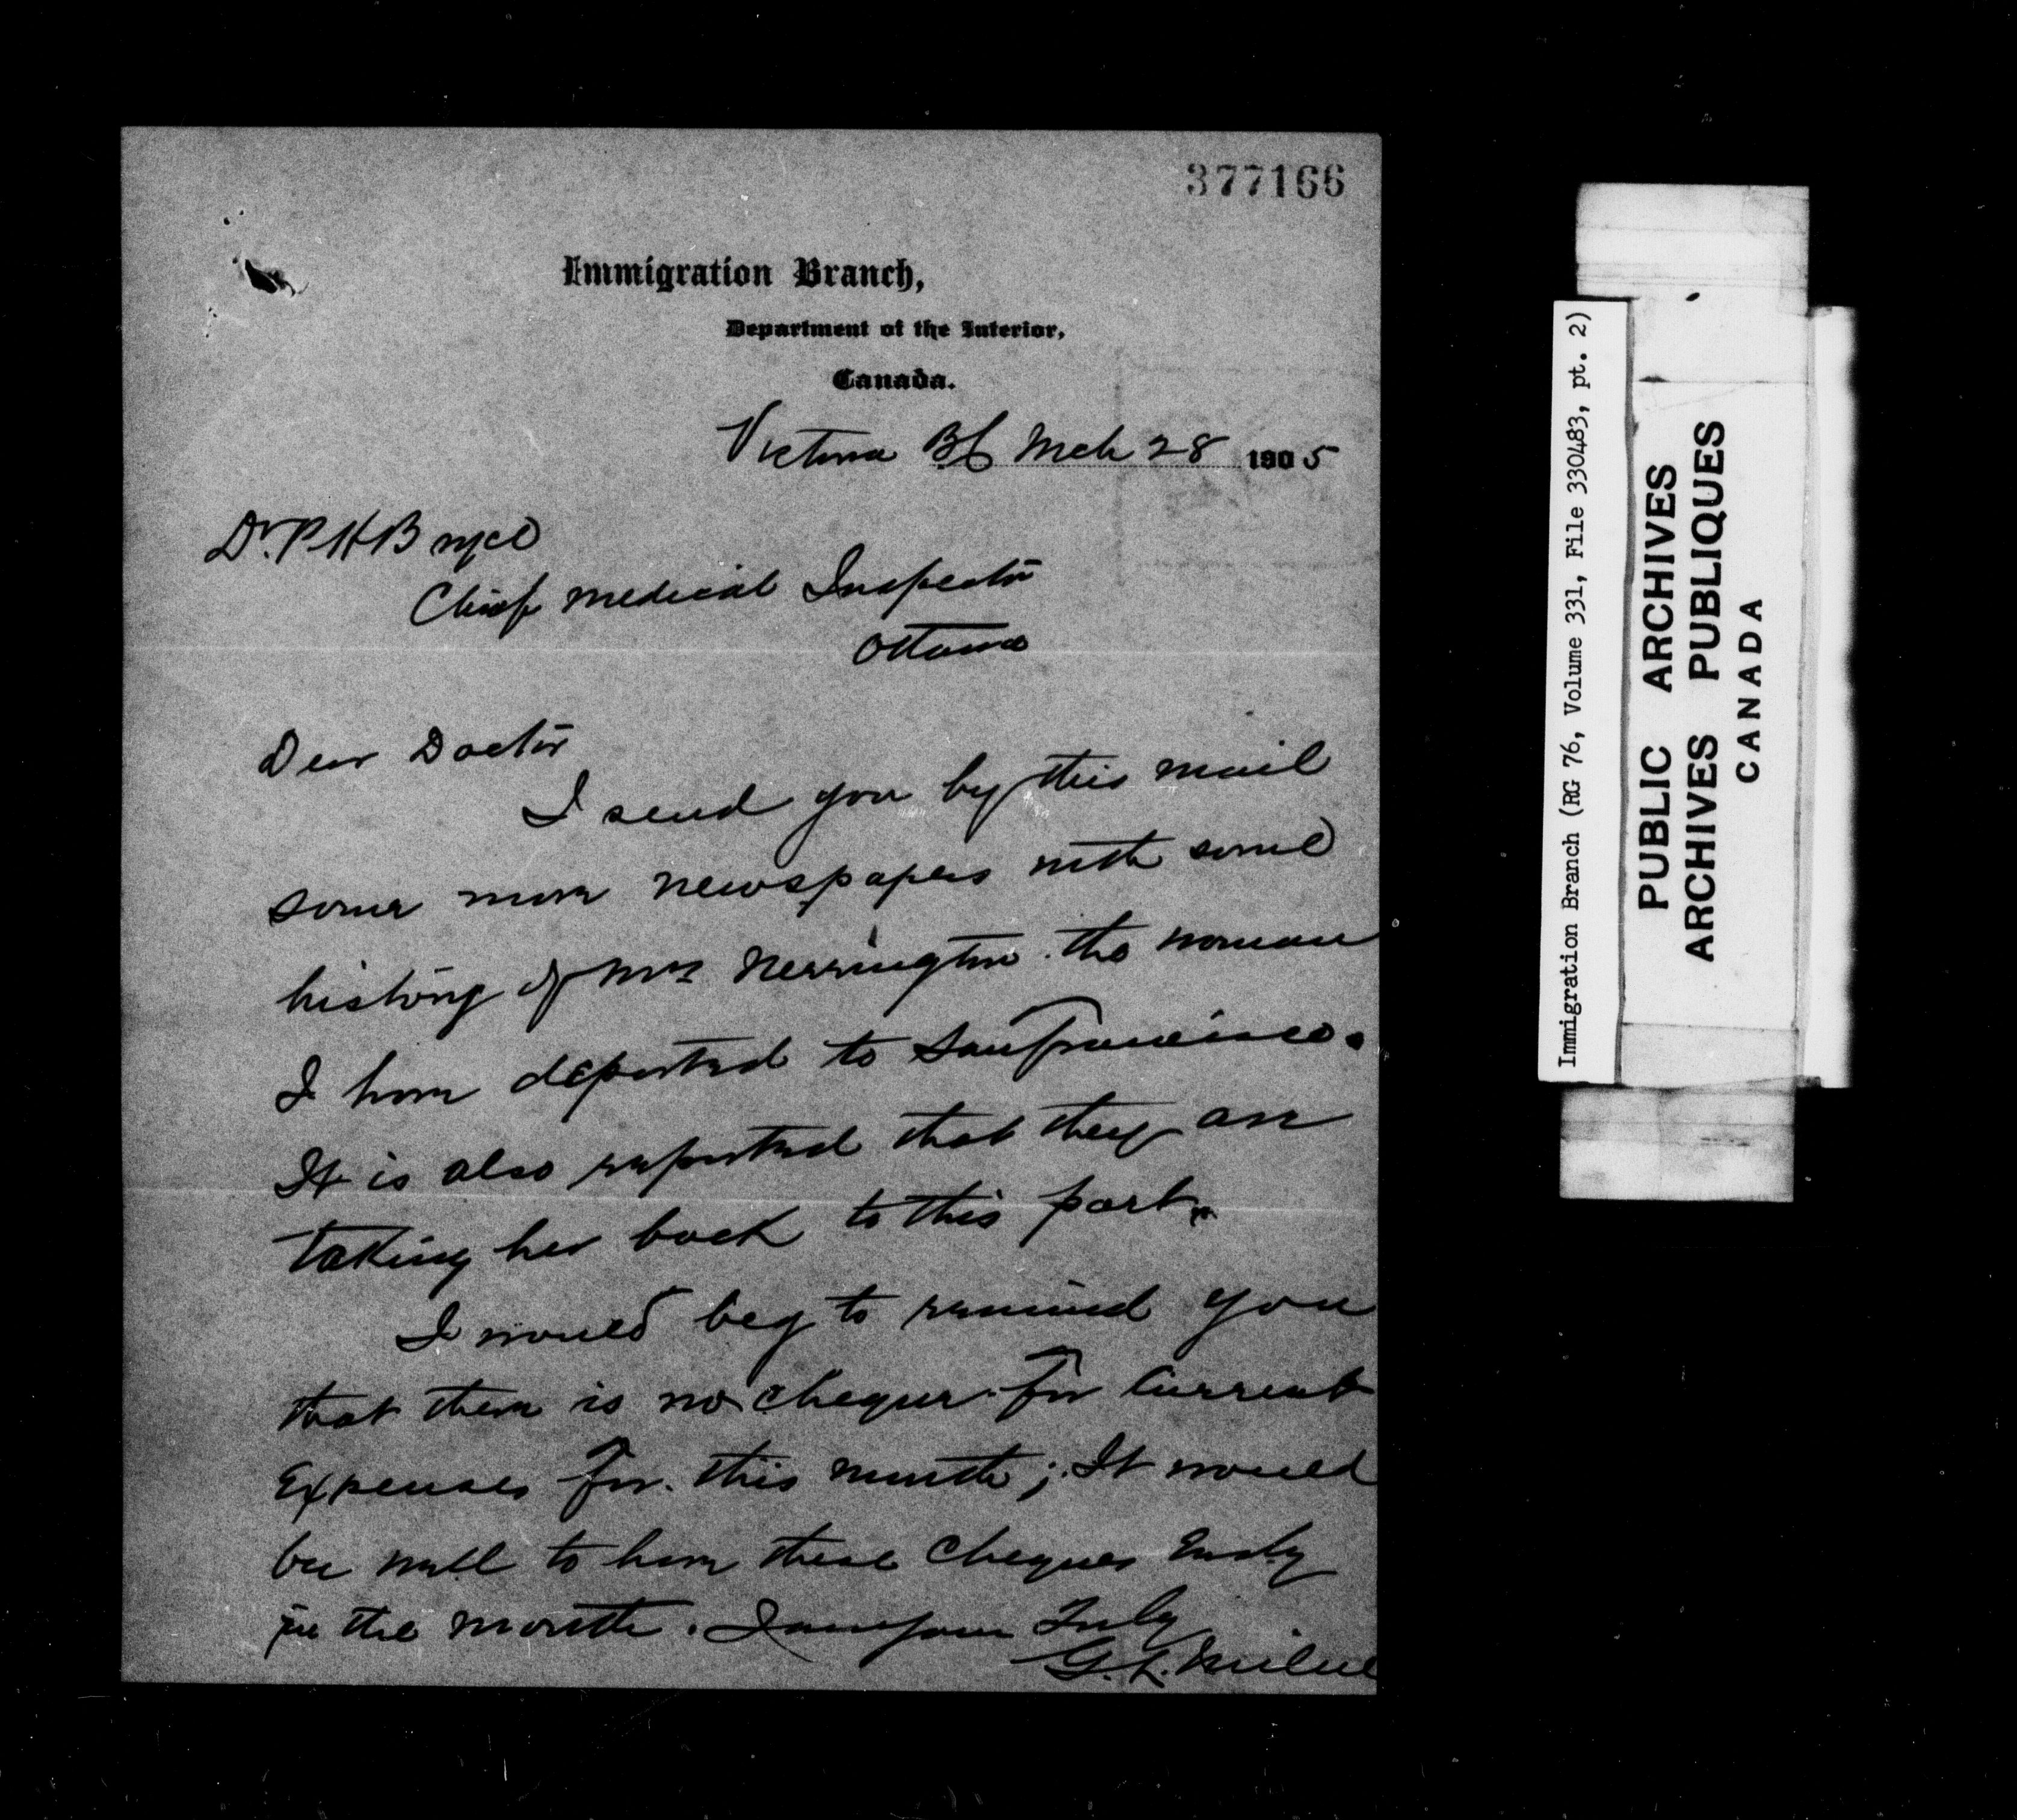 377166
Immigration Branch,
Department of the Interior,
Canada.
Victoria BC Mch 28 1905
Dr. P H Bryce
Chief Medical Inspector
Ottawa
Dear Doctor
I send you by this mail
some more newspapers with some
history of Mrs Nerrington the woman
I have deported to San Francisco.
It is also reported that they are
taking her back to this port.
I would beg to remind you
that there is no cheque for Current
Expenses for this month; It would
be well to have these Cheques Early
in the month. I am yours Truly
G. L. Milne
Immigration Branch (RG 76, Volume 331, File 330483, pt. 2)
PUBLIC ARCHIVES
ARCHIVES PUBLIQUES
CANADA